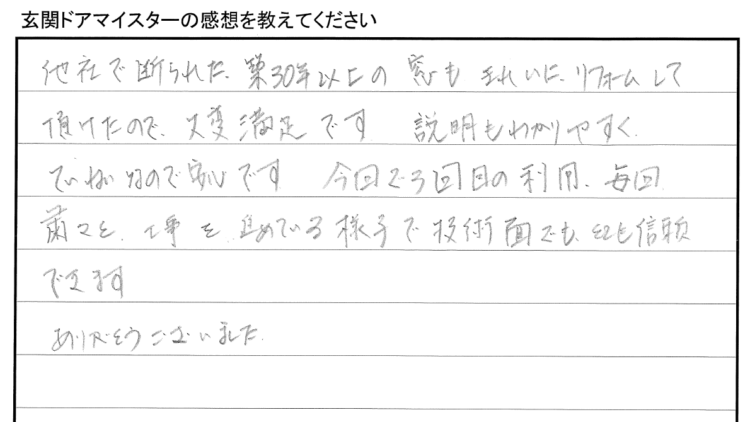 玄関ドアマイスターの感想を教えてください
他社で断られた、築30年以上の窓もきれいに、リフォームして
頂けたので、大変満足です 説明もわかりやすく
ていねいなので安心です 今回で3回目の利用、毎回
粛々と、工事を進めている様子で技術面でも、とても信頼
できます
ありがとうございました。